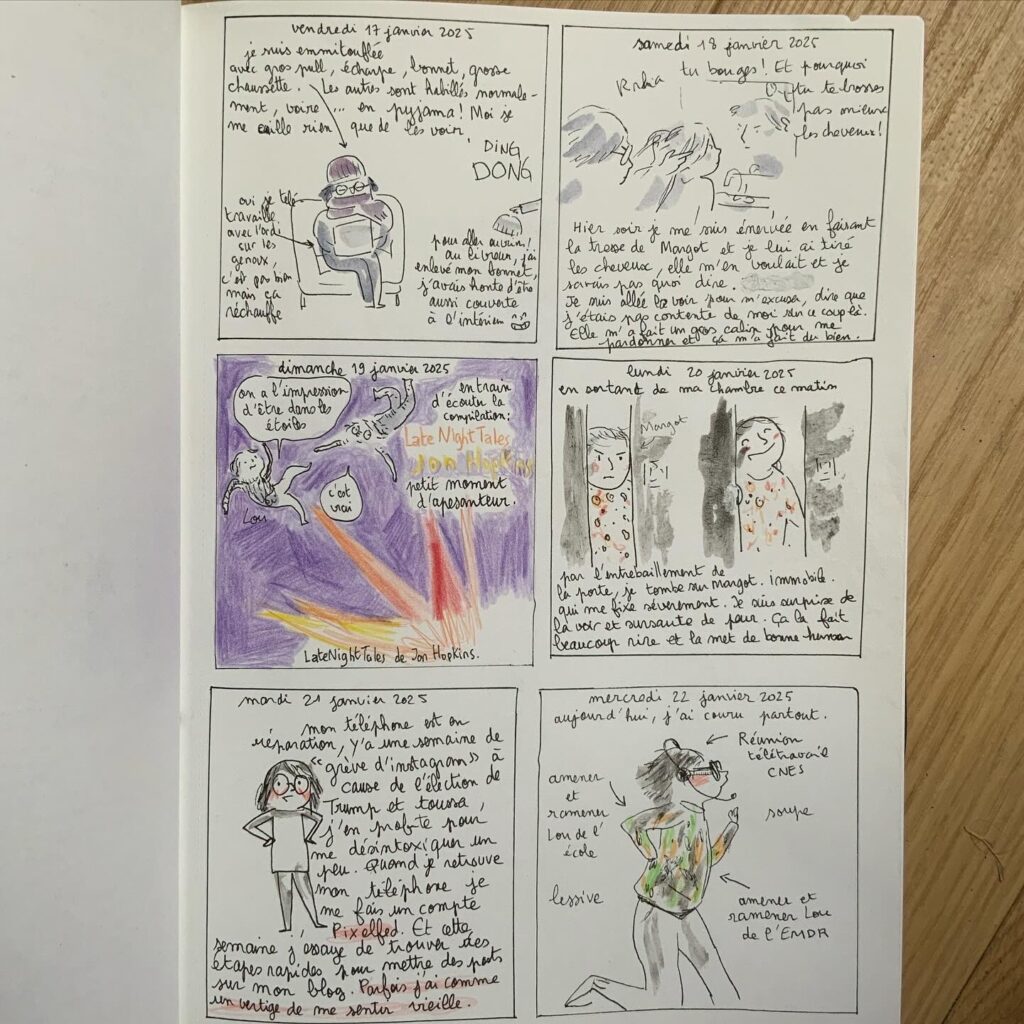 vendredi 17 janvier 2025
je suis emmitouflée
avec gros pull, écharpe, bonnet, grosse
chaussette. Les autres sont habillés normale-
ment, voire ... en pyjama! Moi je
me caille rien que de les voir.
DING
DONG
oui je télé
travaille
avec l'ordi
sur les
genoux,
c'est pas bien
mais ça
réchauffe
pour aller ouvrir
au livreur, j'ai
enlevé mon bonnet,
j'avais honte d'être
aussi couverte
à l'intérieur
samedi 18 janvier 2025
tu bouges! Et pourquoi
tu te brosses
pas mieux
les cheveux!
Hier soir je me suis énervée en faisant
la tresse de Margot et je lui ai tiré
les cheveux, elle m'en voulait et je
savais pas quoi dire.
Je suis allée la voir pour m'excuser, dire que
j'étais pas contente de moi sur ce coup là.
Elle m'a fait un gros calin pour me
pardonner et ça m'a fait du bien.
dimanche 19 janvier 2025
on a l'impression
d'être dans les
étoiles
Lou
c'est
vrai
en train
d'écouter la
compilation:
Late Night Tales
Jon Hopkins
petit moment
d'apesanteur.
Late Night Tales de Jon Hopkins.
lundi 20 janvier 2025
en sortant de ma chambre ce matin
Margot
par l'entrebaillement de
la porte, je tombe sur Margot. immobile.
qui me fixe sévèrement. Je suis surprise de
la voir et sursaute de peur. Ça la fait
beaucoup rire et la met de bonne humeur
mardi 21 janvier 2025
mon téléphone est en
réparation, y'a une semaine de
"grève d'instagram" à
cause de l'élection de
Trump et toussa,
j'en profite pour
me désintoxiquer un
peu. Quand je retrouve
mon téléphone je
me fais un compte
Pixelfed. Et cette
semaine j'essaye de trouver des
étapes rapides pour mettre des posts
sur mon blog. Parfois j'ai comme
un vertige de me sentir vieille.
mercredi 22 janvier 2025
aujourd'hui, j'ai couru partout.
Réunion
télétravail
CNES
amener
et
ramener
Lou de l'
école
soupe
lessive
amener et
ramener Lou
de l'EMDR